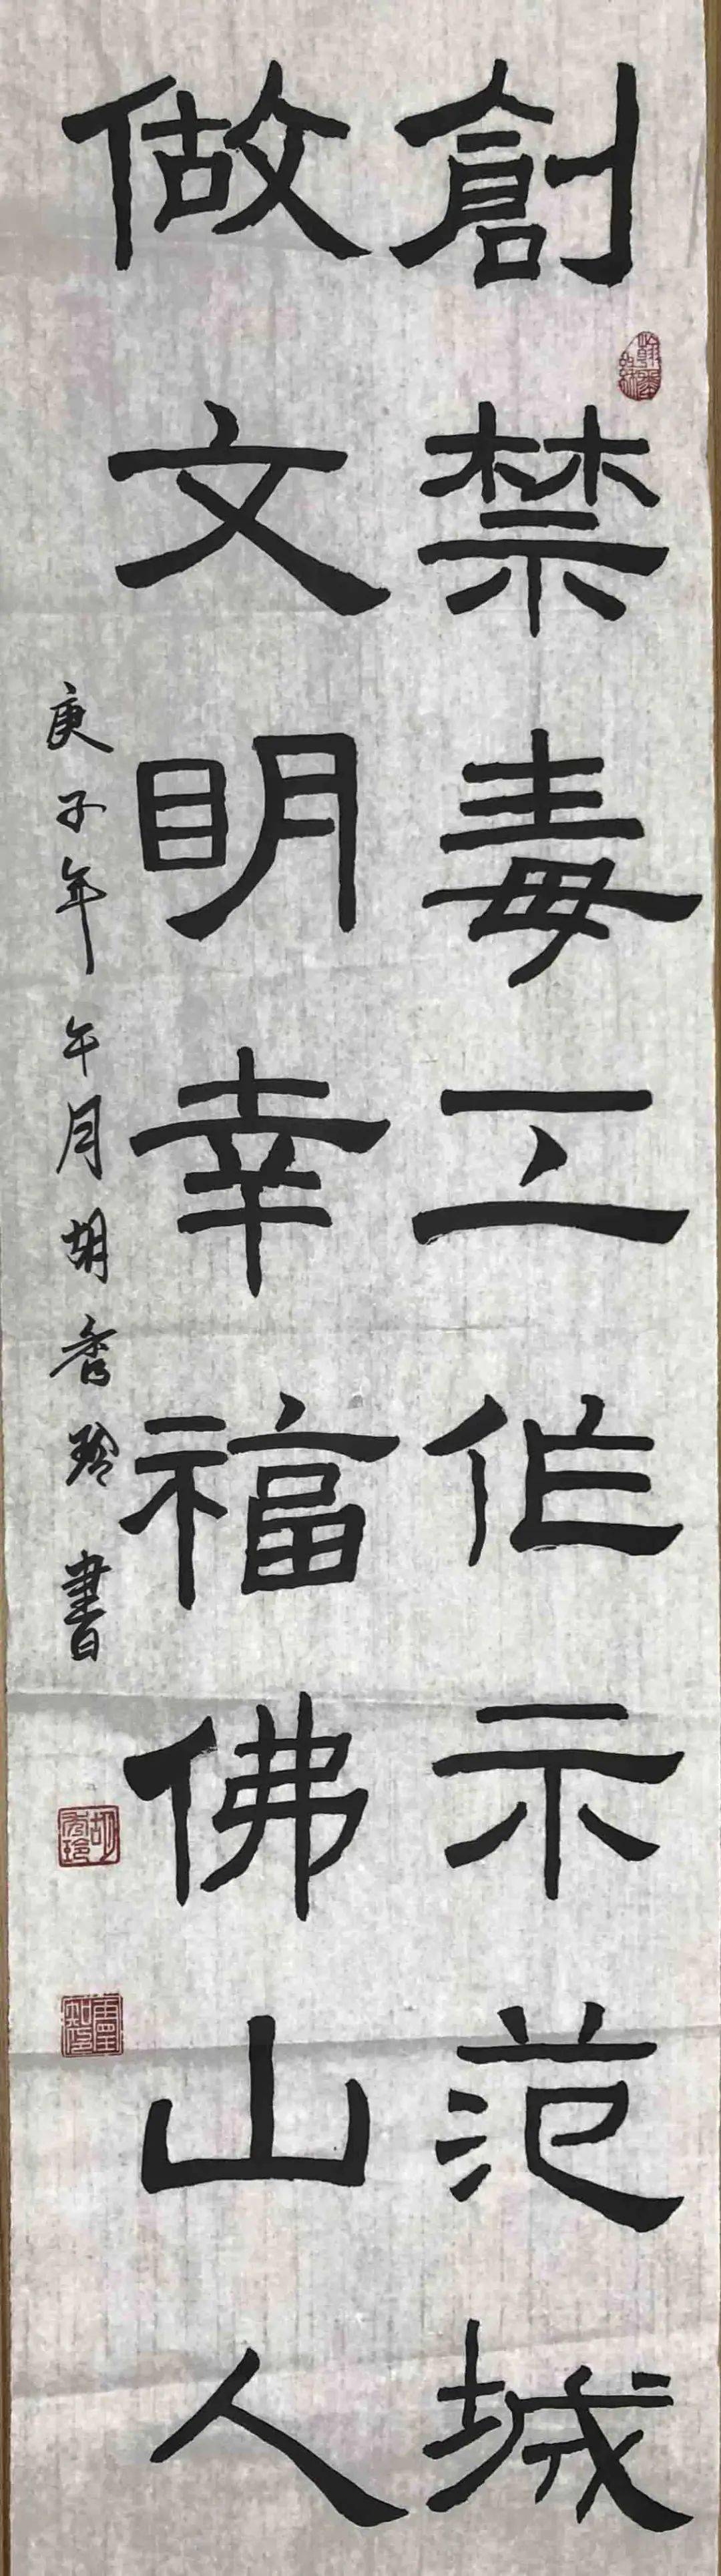 創禁毒工作示范城
做文明幸福佛山人
庚子年午月胡香玲書